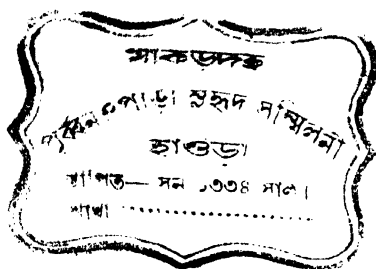 মাকড়দহ
পাড়া সুহৃদ সম্মিলনী
হাওড়া
স্থাপিত— সন ১৩৩৪ সাল।
শাখা ....................